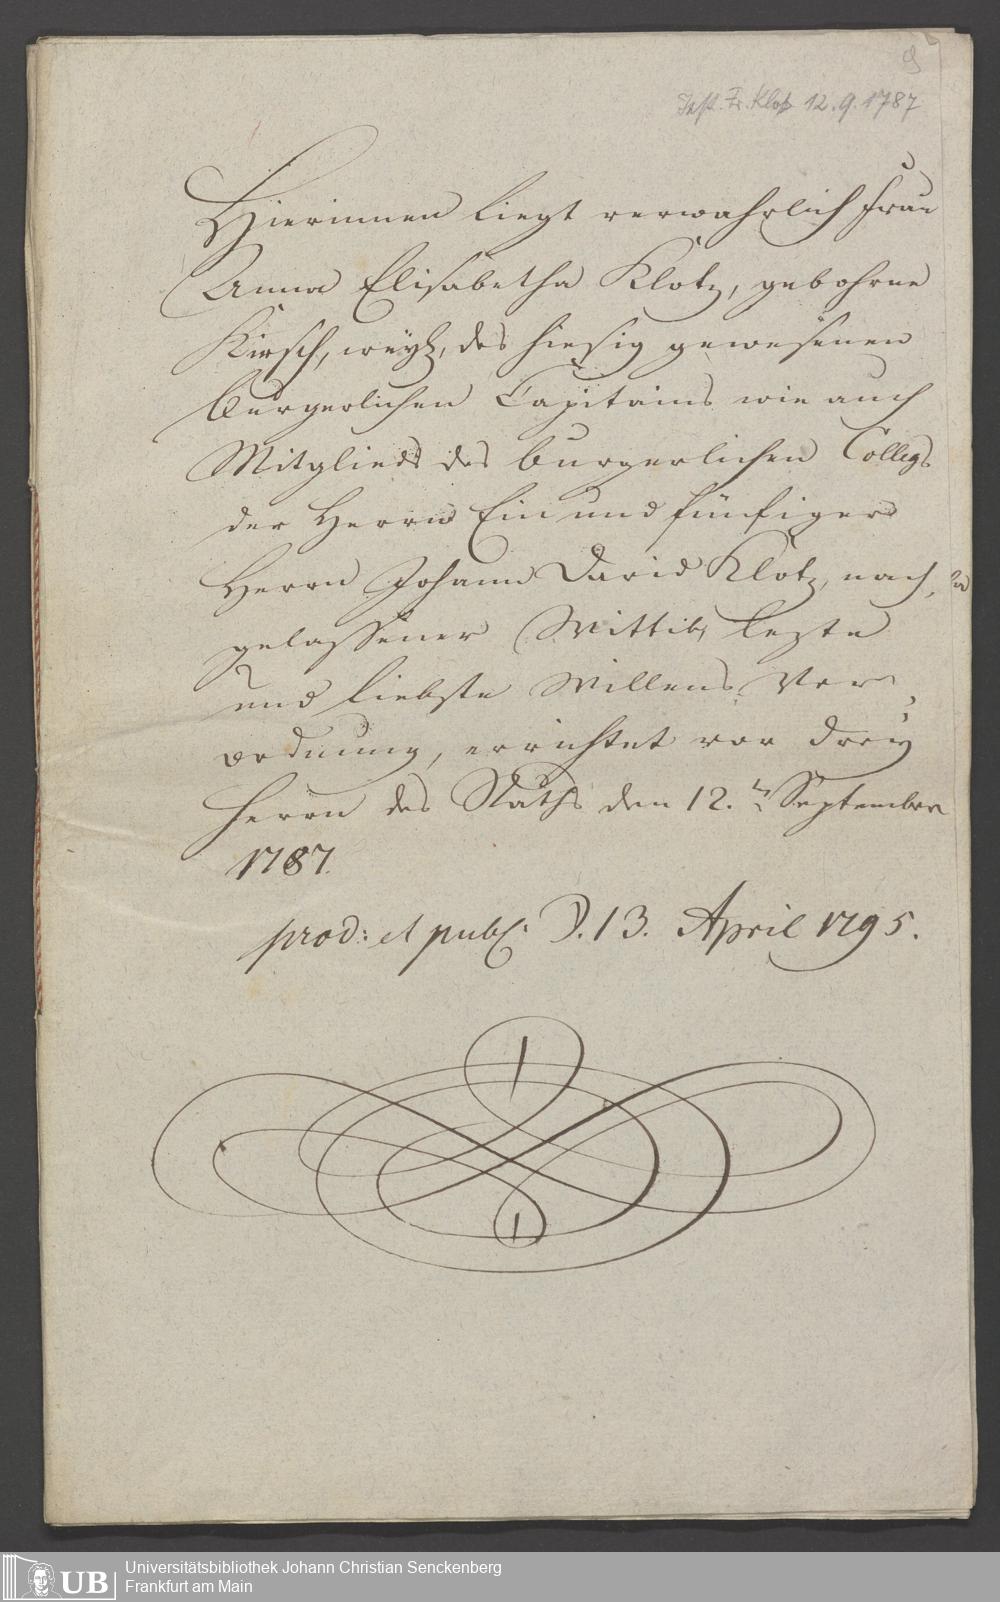 9
Test. Fr. Klotz 12.9.1787
Hierinnen liegt verwahrlich Frau
Anna Elisabetha Klotz, gebohrne
Kirsch, weyl. des hiesig gewesenen
burgerlichen Capitains wie auch
Mitglieds des burgerlichen Collegs
der Herrn Ein und funfziger
Herrn Johann David Klotz, nach,
gelassener Wittib, lezte
und liebste Willens Ver,
ordnung, errichtet vor drey
Herrn des Raths den 12.ten September
1787.
prod: et publ. D. 13. April 1795.
1
1
UB
Universitätsbibliothek Johann Christian Senckenberg
Frankfurt am Main